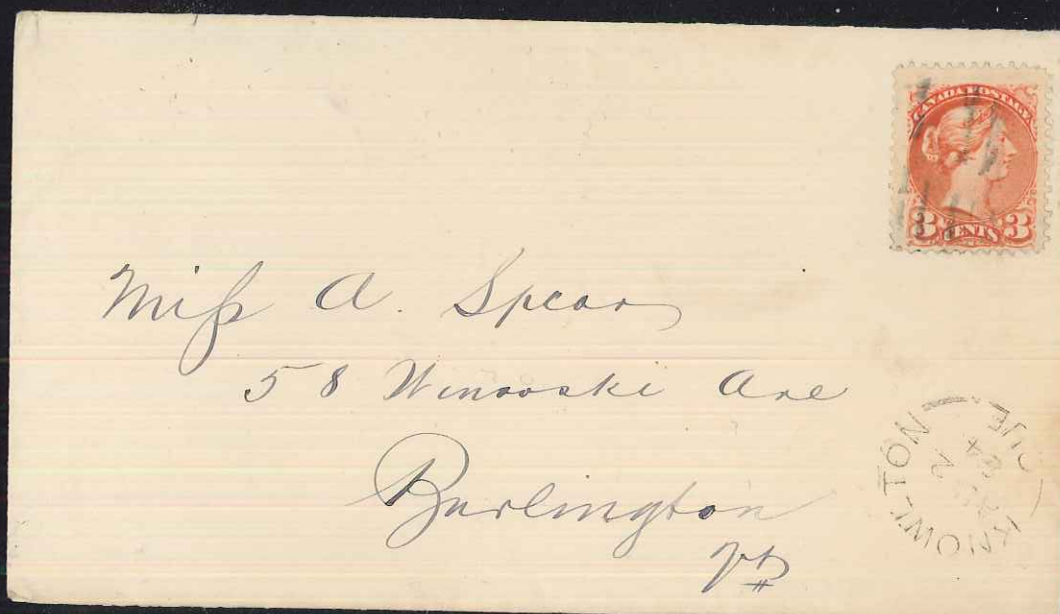 CANADA POSTAGE
3 CENTS 3
Miss A. Spear
58 Winooski Ave
Burlington
Vt
KNOWLTON QUE
2